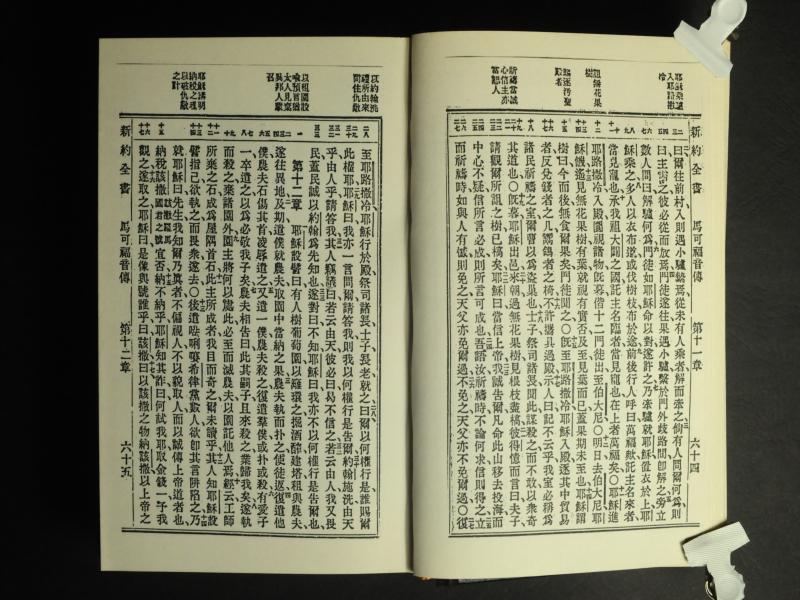 新約全書　馬可福音傳　第十一章　六十四
耶穌乘驢
入耶路撒
冷
詛無花果
樹
驅逐污聖
殿者
祈禱當誠
心信主亦
當恕人
曰爾往前村入則遇小驢縶焉從未有人乘者解而牽之倘有人問爾何爲則
曰主需之彼必從而放焉門徒遂往果遇小驢縶於門外歧路間卽解之旁立
數人問曰解驢何爲門徒如耶穌命以對遂許之乃牽驢就耶穌置衣於上耶
穌乘之多人以衣布徹或伐樹枝布於途前後行人呼曰萬福歟託主名來者
當見寵也承我祖大闢之國託主名臨者當見寵也在上者萬福矣○耶穌進
耶路撒冷入殿徧視諸物旣暮偕十二門徒出至伯大尼○明日去伯大尼耶
穌饑遙見無花果樹有葉就視有實否及至見葉而已蓋果期未至也耶穌謂
樹曰今而後無食爾果矣門徒聞之○旣至耶路撒冷耶穌入殿逐其中貿易
者反兌錢者之几鬻鴿者之椅不許攜具過殿示人曰記不云乎我室必稱爲
諸民祈禱之室爾曹以爲盜巢也士子祭司諸長聞此謀殺之而不敢以衆奇
其道也○旣暮耶穌出邑來朝過無花果樹見根枝盡槁彼得憶而言曰夫子
觀爾所詛之樹已槁矣耶穌曰當信上帝我誠告爾凡命此山移去投海而
中心不疑信所言必成則所言可成也吾語汝祈禱時不論何求信則得之立
而祈禱時如與人有憾則免之天父亦免爾過不免之天父亦不免爾過○復
新約全書　馬可福音傳　第十二章　六十五
以約翰洗
禮所由來
問住仇敵
以租園設
喻預言猶
太人見棄
異邦人蒙
召
耶穌講明
納稅之理
以破仇敵
之計
至耶路撒冷耶穌行於殿祭司諸長士子長老就之曰爾以何權行是誰賜爾
此權耶耶穌曰我亦一言問爾請答我則我以何權行是告爾約翰施洗由天
乎由人乎請答我其人竊議曰若云由天彼必曰曷不信之若云由人我又畏
民蓋民誠以約翰爲先知也遂對曰不知耶穌曰我亦不以何權行是告爾也
第十二章　耶穌設譬曰有人樹葡萄園以籬環之掘酒醡建塔租與農夫
遂往異地及期遣僕就農夫取園中當納之果農夫執而扑之使徒返復遣他
僕農夫石傷其首凌辱遣之又遣一僕農夫殺之復遣羣僕或扑或殺有愛子
一卒遣之以爲必敬我子矣農夫相告曰此其嗣子且來殺之業歸我矣遂執
而殺之棄諸園外園主將何以處此必至而滅農夫以園託他人焉經云工師
所棄之石成爲屋隅首石此主所成者我目而奇之爾未讀乎其人知耶穌設
譬指己欲執之而畏衆遂去○後遣𠵽唎㘔希律黨數人欲卽其言阱陷之乃
就耶穌曰先生我知爾乃眞者不偏視人不以貌取人而以誠傳上帝道者也
納稅該撒宜否納不納乎耶穌知其詐曰何試我耶取金錢一予我
觀之遂取之耶穌曰是像與號誰乎曰該撒曰以該撒之物納該撒以上帝之